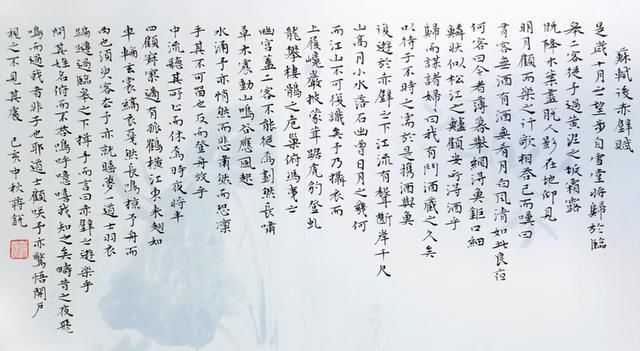 蘇軾後赤壁賦
是歲十月之望步自雪堂將歸於臨
皋二客從予過黃泥之坂霜露
既降木葉盡脫人影在地仰見
明月顧而樂之行歌相答已而嘆曰
有客無酒有酒無肴月白風清如此良夜
何客曰今者薄暮舉網得魚鉅口細
鱗狀似松江之鱸顧安所得酒乎
歸而謀諸婦婦曰我有斗酒藏之久矣
以待子不時之需於是攜酒與魚
復遊於赤壁之下江流有聲斷岸千尺
山高月小水落石出曾日月之幾何
而江山不可復識矣予乃攝衣而
上履巉巖披蒙茸踞虎豹登虬
龍攀棲鶻之危巢俯馮夷之
幽宮蓋二客不能從焉劃然長嘯
草木震動山鳴谷應風起
水涌予亦悄然而悲肅然而恐凜
乎其不可留也反而登舟放乎
中流聽其所止而休焉時夜將半
四顧寂寥適有孤鶴橫江東來翅如
車輪玄裳縞衣戛然長鳴掠予舟而
西也須臾客去予亦就睡夢一道士羽衣
蹁躚過臨皋之下揖予而言曰赤壁之遊樂乎
問其姓名俯而不答嗚呼噫嘻我知之矣疇昔之夜飛
鳴而過我者非子也耶道士顧笑予亦驚悟開戶
視之不見其處 己亥中秋蔣銳